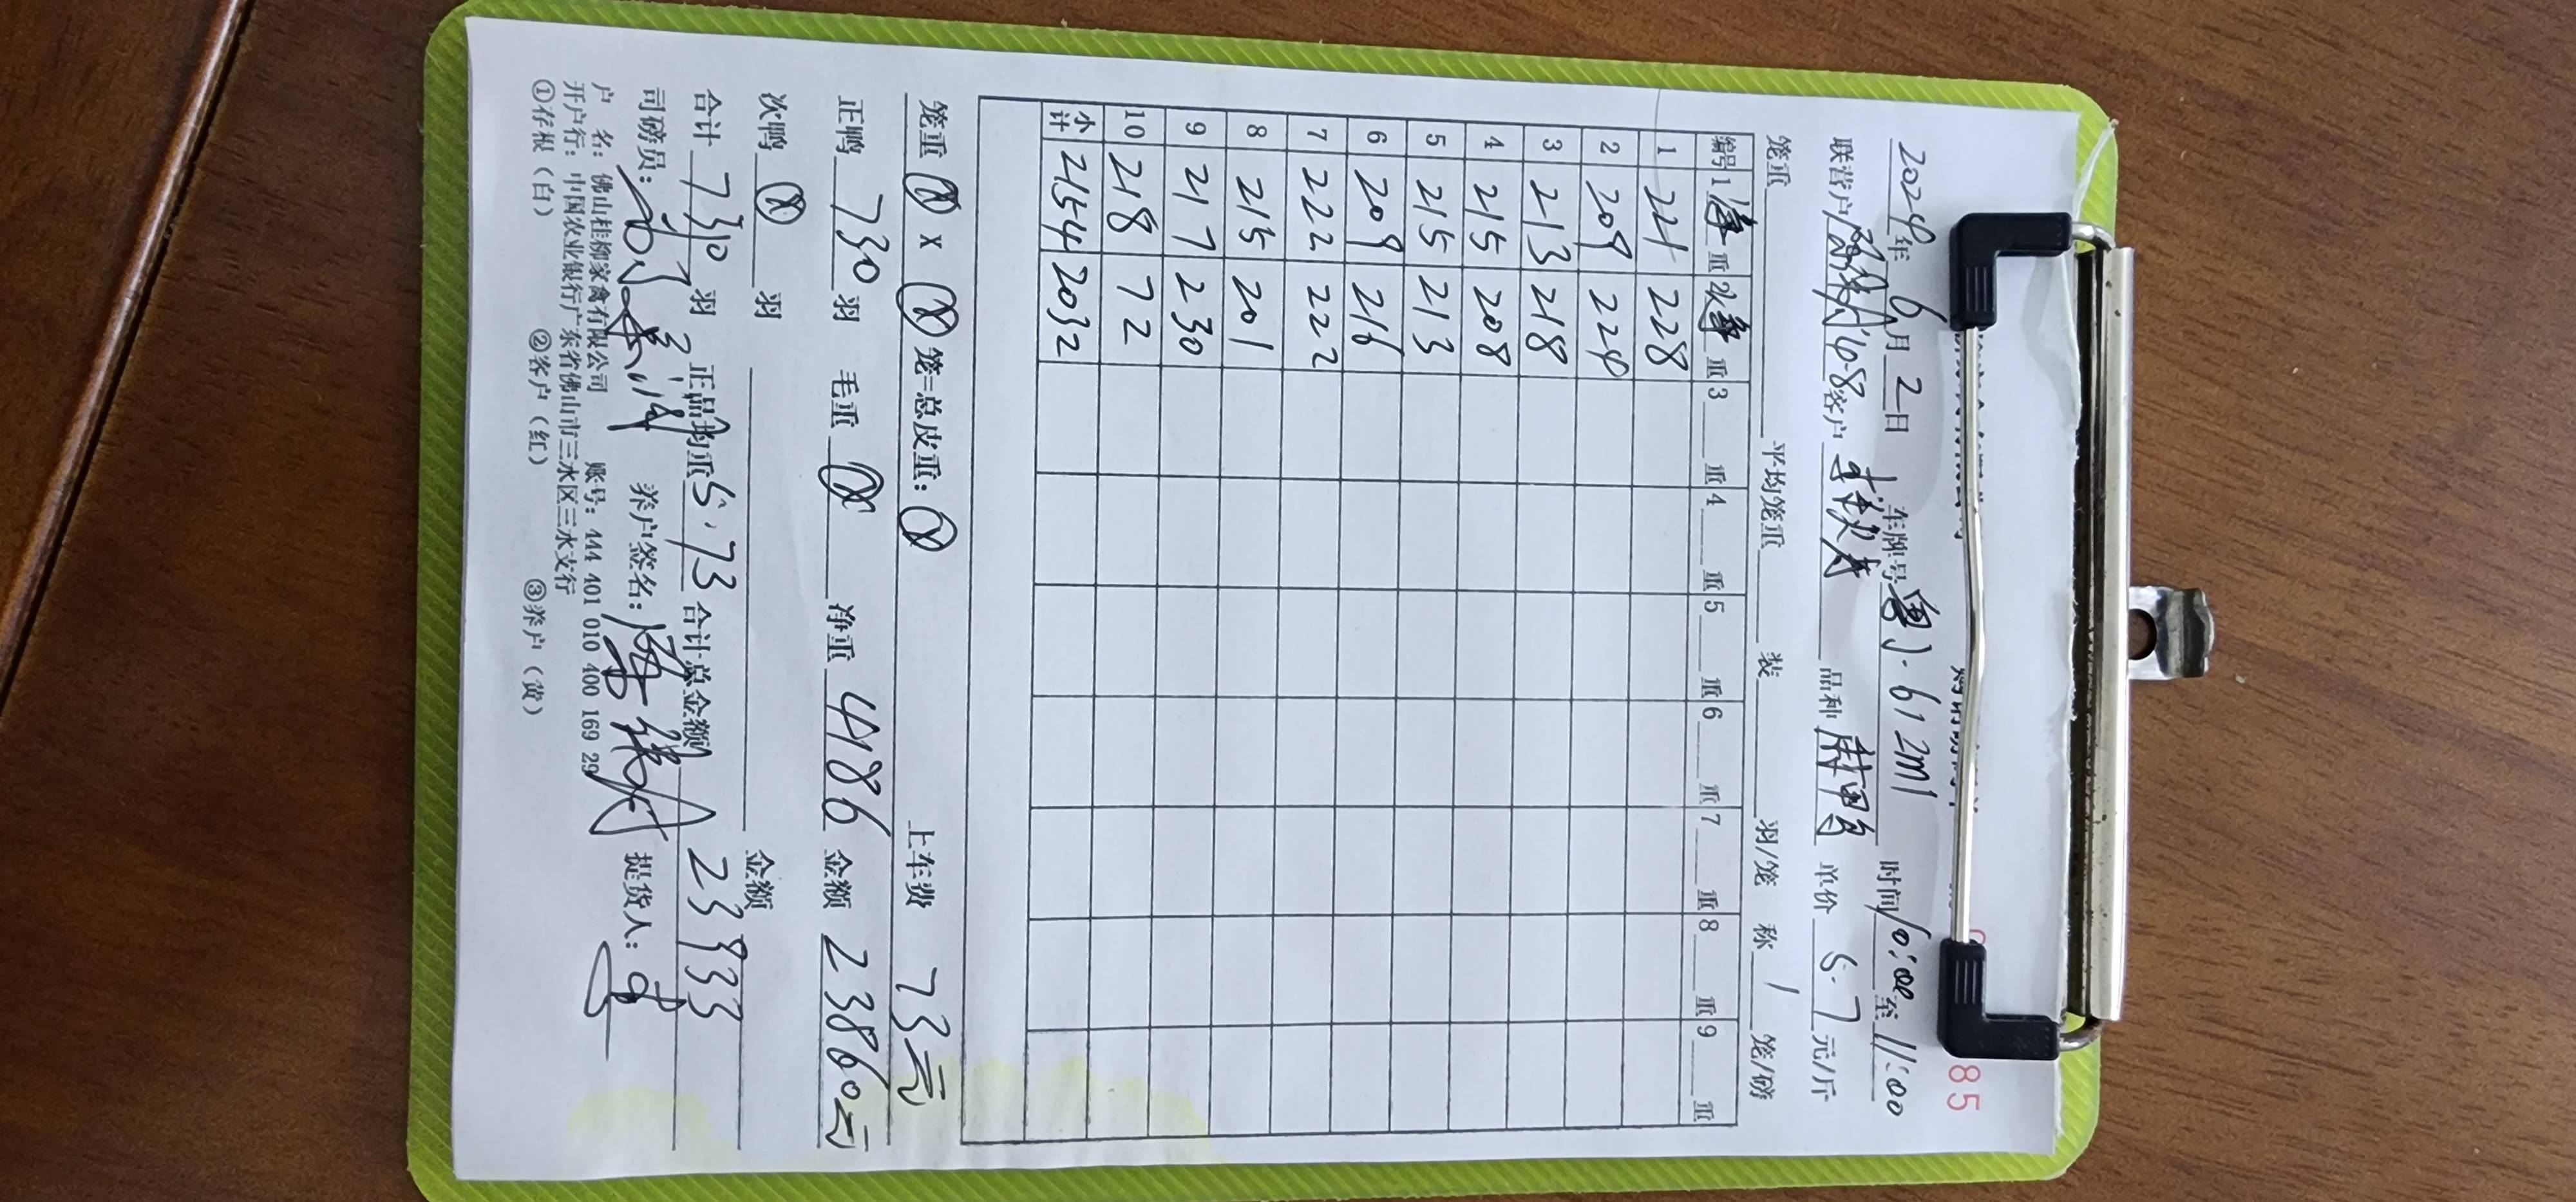 85
2024年6月2日 车牌号粤J·612M1 时间10:00至11:00
联营户 168客户 品种 单价5.7元/斤
笼重 平均笼重 装 羽/笼 称1笼/磅
编号 1净重 2净重 3 重 4 重 5 重 6 重 7 重 8 重 9 重
1 221 228
2 209 224
3 213 218
4 215 208
5 215 213
6 209 216
7 222 222
8 215 201
9 217 230
10 218 72
小计 2154 2032
笼重 X 笼=总皮重: 上车费 73元
正鸭 730羽 毛重 净重 4186 金额 23860元
次鸭 羽 金额
合计 730羽 正品均重 5.73 合计总金额 23933
司磅员: 养户签名: 提货人:
户 名: 佛山桂柳家禽有限公司 账号: 444 401 010 400 169 29
开户行: 中国农业银行广东省佛山市三水区三水支行
①存根（白） ②客户（红） ③养户（黄）